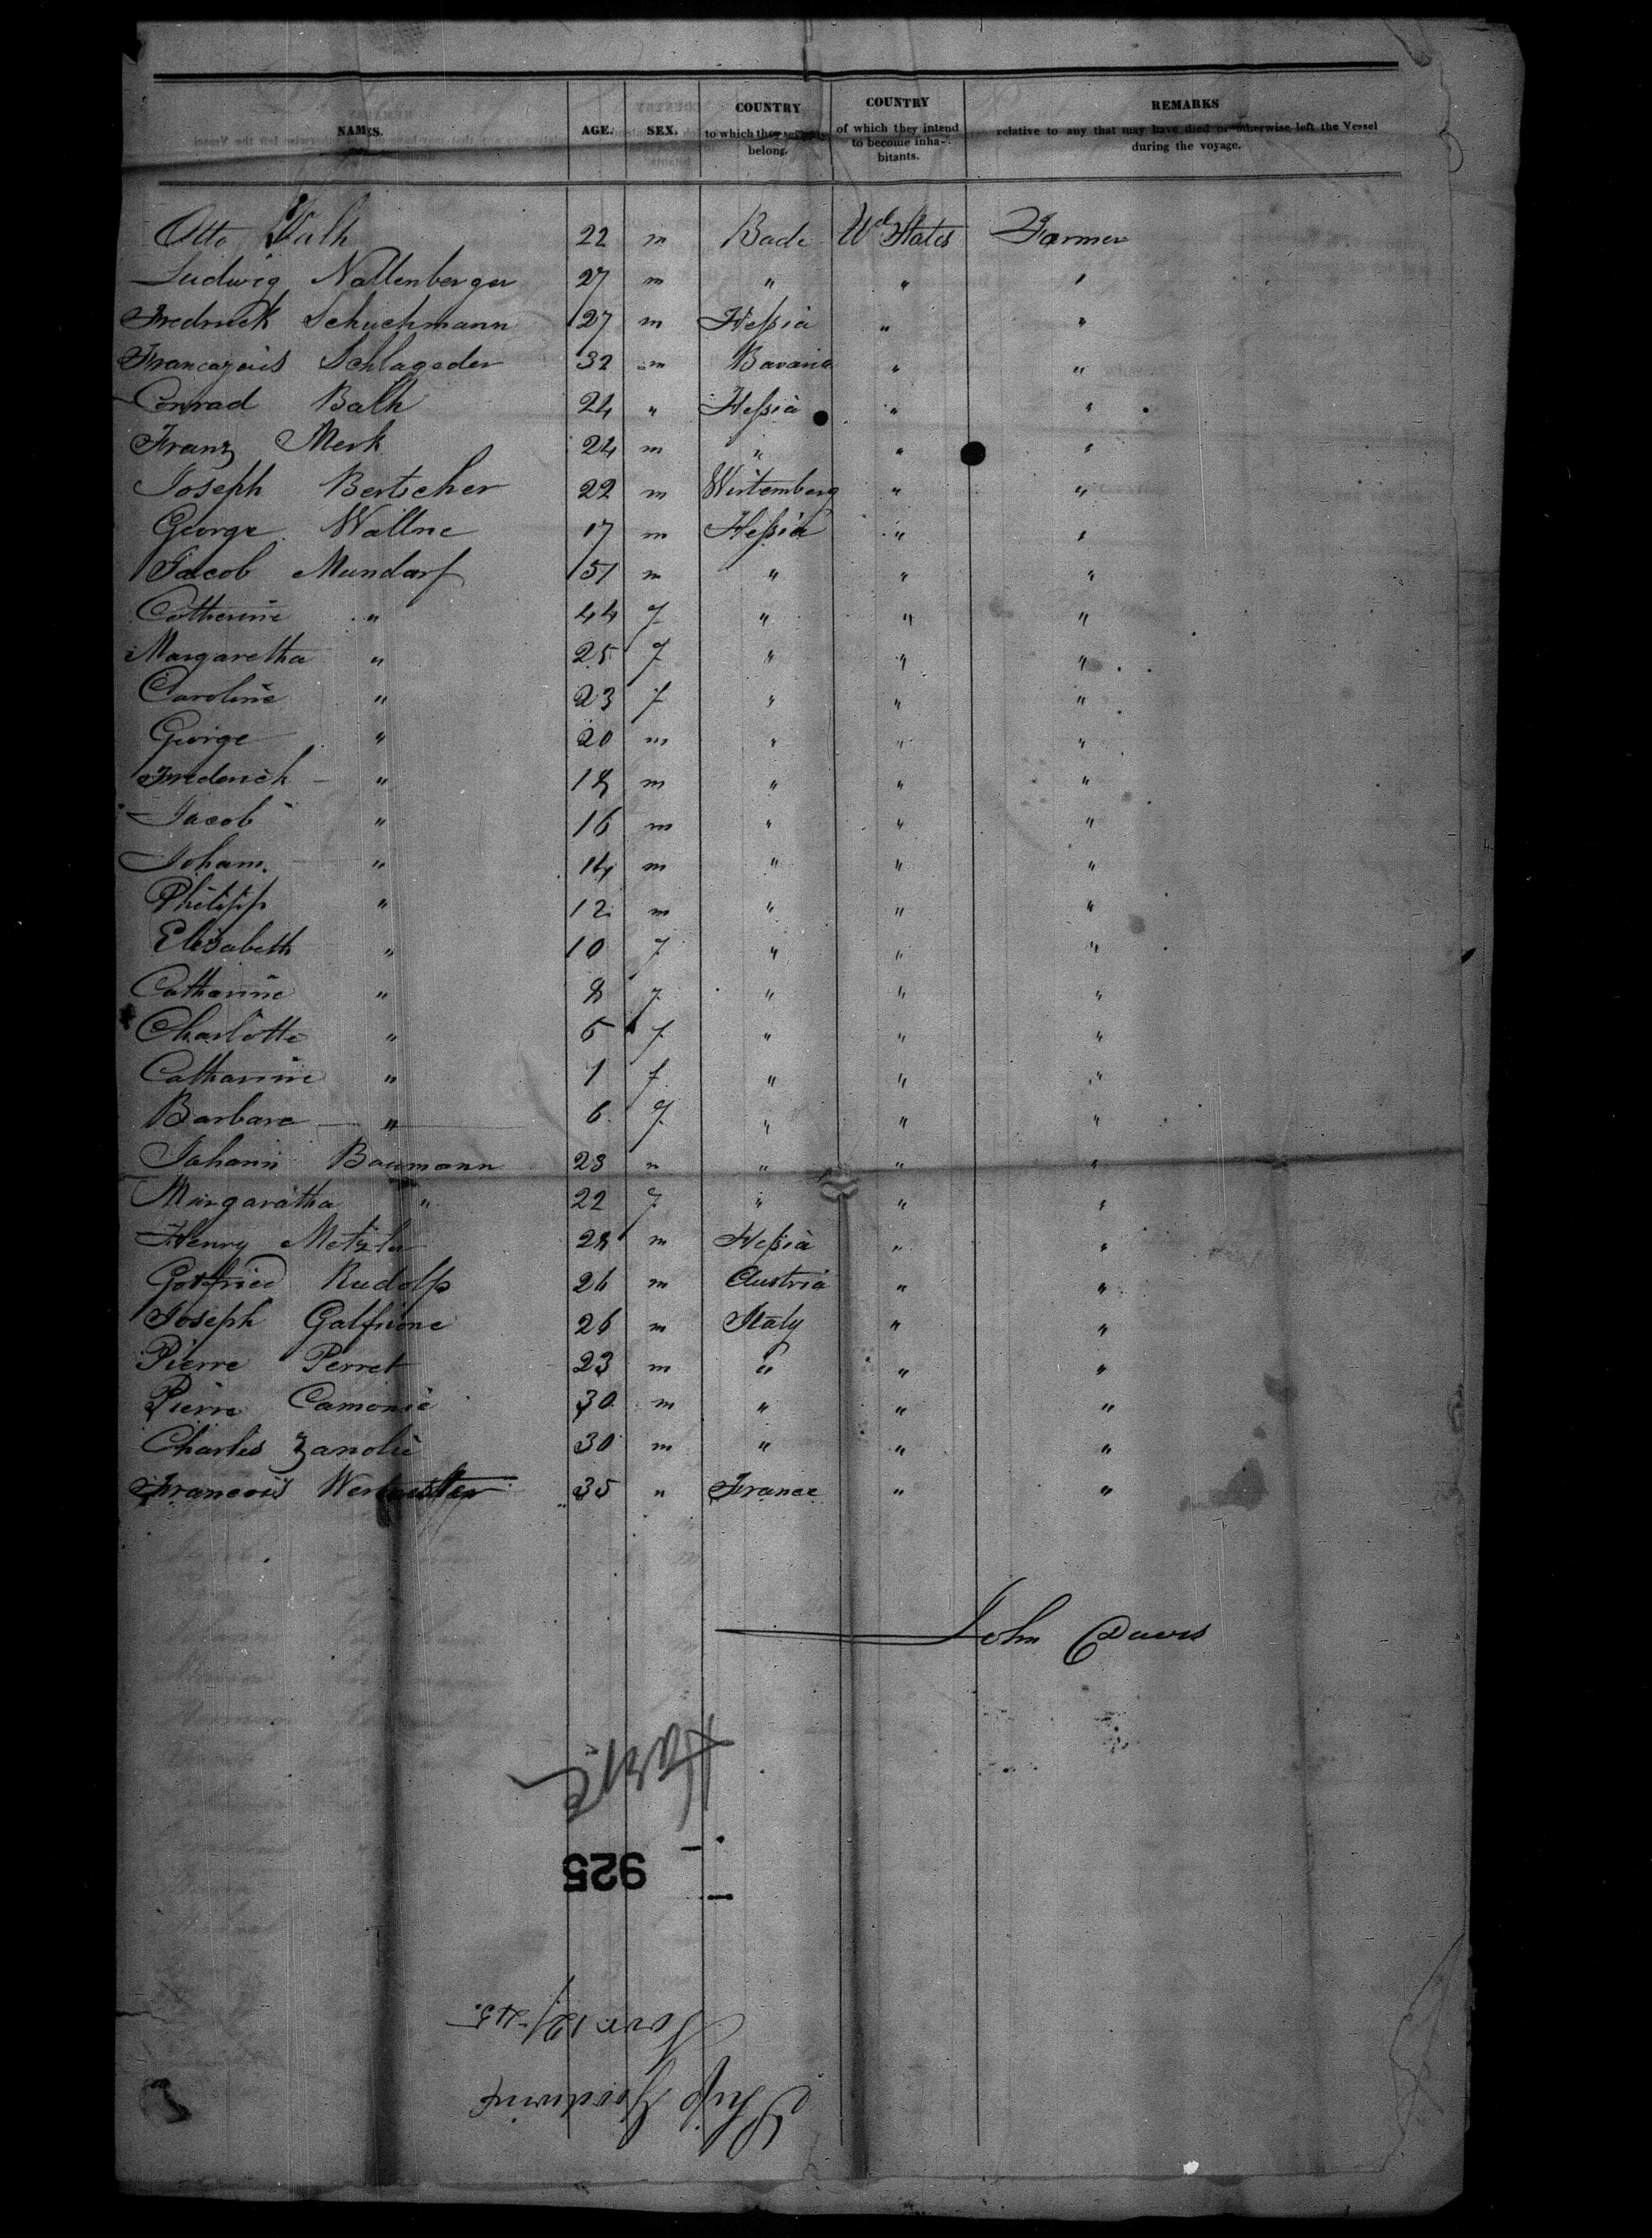 NAMES. AGE. SEX. COUNTRY to which they severally belong. COUNTRY of which they intend to become inhabitants. REMARKS relative to any that may have died or otherwise left the Vessel during the voyage.
Otto 22 m Bade Ud States Farmer
Ludwig Nallenberger 27 m " " "
Fredrick Schuchmann 27 m Heſsia " "
Schlageder 32 m Bavaria " "
Conrad Balh 24 " Heſsia " "
Franz Merk 24 m " " "
Joseph Bertscher 22 m Wirtemberg " "
George Wallne 17 m Heſsia " "
Jacob Mundarf 51 m " " "
Catherine " 44 f " " "
Margaretha " 25 f " " "
Caroline " 23 f " " "
George " 20 m " " "
Frederich " 18 m " " "
Jacob " 16 m " " "
Joham. " 14 m " " "
Philipp " 12 m " " "
Elisabeth " 10 f " " "
Catharine " 8 f " " "
Charlotte " 5 f " " "
Catharine " 1 f " " "
Barbara " 6 f " " "
Johann Baumann 28 " " " "
Margaratha " 22 f " " "
Henry Metzler 28 m Heſsia " "
Gotfried Rudolf 26 m Austria " "
Joseph Galfrione 26 m Italy " "
Pierre Perret 23 m " " "
Pierre Camonie 30 m " " "
Charles Zanolie 30 m " " "
Francois 35 " France " "
John Davis
Havre
925
Nov 12/45.
Ship